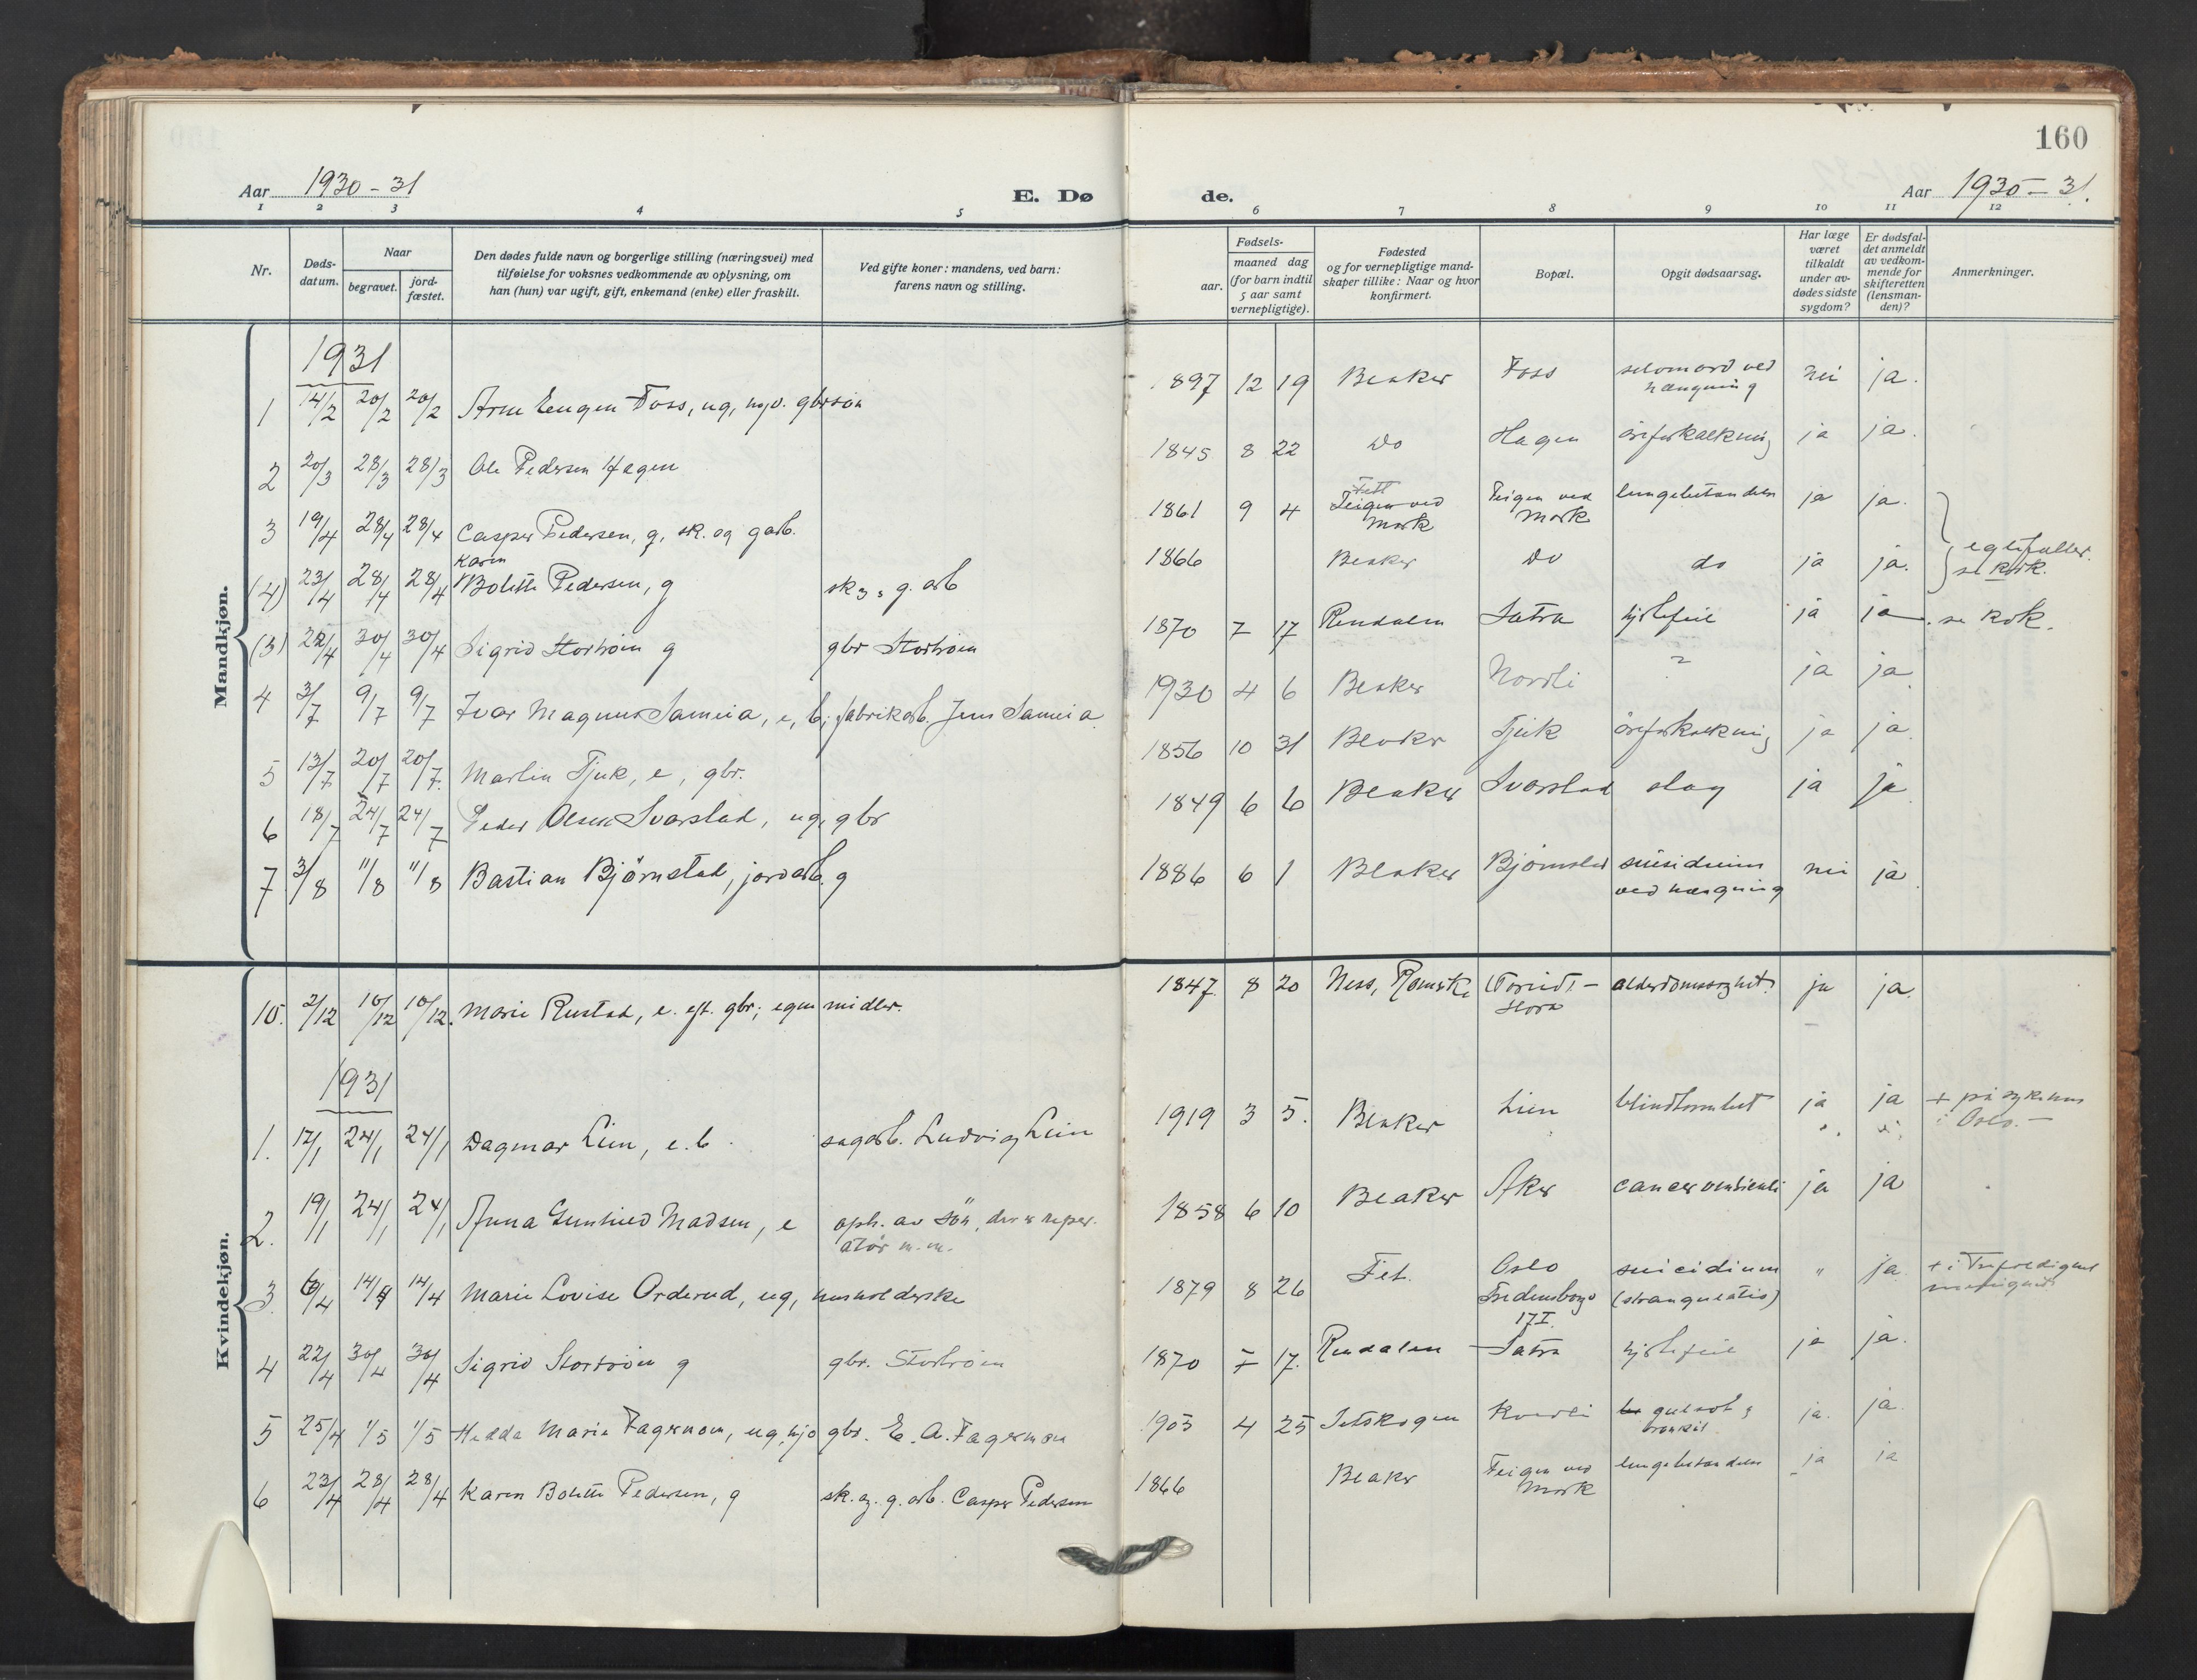 160
Aar 1930-31
E. Dø
de.
Aar 1930-31.
1 2 3 4 5 6 7 8 9 10 11 12
Nr.
Døds-
datum.
Naar
begravet.
jord-
fæstet.
Den dødes fulde navn og borgerlige stilling (næringsvei) med
tilføielse for voksnes vedkommende av oplysning, om
han (hun) var ugift, gift, enkemand (enke) eller fraskilt.
Ved gifte koner: mandens, ved barn:
farens navn og stilling.
Fødsels-
aar.
maaned dag
(for barn indtil
5 aar samt
vernepligtige).
Fødested
og for vernepligtige mand-
skaper tillike: Naar og hvor
konfirmert.
Bopæl.
Opgit dødsaarsag.
Har læge
været
tilkaldt
under av-
dødes sidste
sygdom?
Er dødsfal-
det anmeldt
av vedkom-
mende for
skifteretten
(lensman-
den)?
Anmerkninger.
Mandkjøn.
1931
1 14/2 20/2 20/2 Arne Eugen Foss, ug, gbrsøn 1897 12 19 Blaker Foss selvmord ved hængning nei ja.
2 20/3 28/3 28/3 Ole Pedersen Hagen 1845 8 22 Do Hagen åreforkalkning ja ja.
3 19/4 28/4 28/4 Casper Pedersen, g, sk. og g arb. 1861 9 4 Fett Teigen ved Mork Teigen ved Mork lungebetændelse ja ja.
(4) 23/4 28/4 28/4 Karen Bolette Pedersen, g sk. g. arb 1866 Blaker Do do ja ja. egtefeller. se kvk.
(3) 22/4 30/4 30/4 Sigrid Storbroen g gbr Storbroen 1870 7 17 Rendalen Sætra hjertefeil ja ja. se kvk.
4 3/7 9/7 9/7 Ivar Magnus Sameia, e, b; fabrikarb. Jens Sameia 1930 4 6 Blaker Nordli ? ja ja
5 13/7 20/7 20/7 Martin Tjuk, e, gbr. 1856 10 31 Blaker Tjuk åreforkalkning ja ja.
6 18/7 24/7 24/7 Peder Olsen Svarstad, ug, gbr 1849 6 6 Blaker Svarstad slag ja ja
7 3/8 11/8 11/8 Bastian Bjørnstad, jordarb. g 1886 6 1 Blaker Bjørnstad suisidium ved hængning nei ja.
Kvindekjøn.
10. 2/12 10/12 10/12. Marie Rustad, e. eft. gbr; egne midler. 1847 8 20 Ness, Romerike alderdomssvaghet. ja ja.
1931
1. 17/1 24/1 24/1 Dagmar Lien, e. b. sagarb. Ludvig Lien 1919 3 5. Blaker Lien blindtarmbet ja ja + på sykehus i Oslo. -
2. 19/1 24/1 24/1 Anna Gunhild Madsen, e oph. av søn, der er reper- atør m. m. 1858 6 10 Blaker Aker cancer ventriculi ja ja
3. 6/4 14/4 14/4 Marie Lovise Orderud, ug, husholderske 1879 8 26 Fet. Oslo Fredensborgv 17 I. suicidium (strangulatio) " ja. + i Trefoldighets menighet
4 22/4 30/4 30/4 Sigrid Storbroen g gbr. Storbroen 1870 7 17. Rendalen Sætra hjertefeil ja ja.
5 25/4 1/5 1/5 Hedda Marie Fagermoen, ug, hjo gbr. E. A. Fagermoen 1903 4 25 Setskogen Kverli gulsot & bronkit. ja. ja.
6 23/4 28/4 28/4 Karen Bolette Pedersen, g sk. og. g. arb. Casper Pedersen 1866 Blaker Teigen ved Mork lungebetændelse ja ja